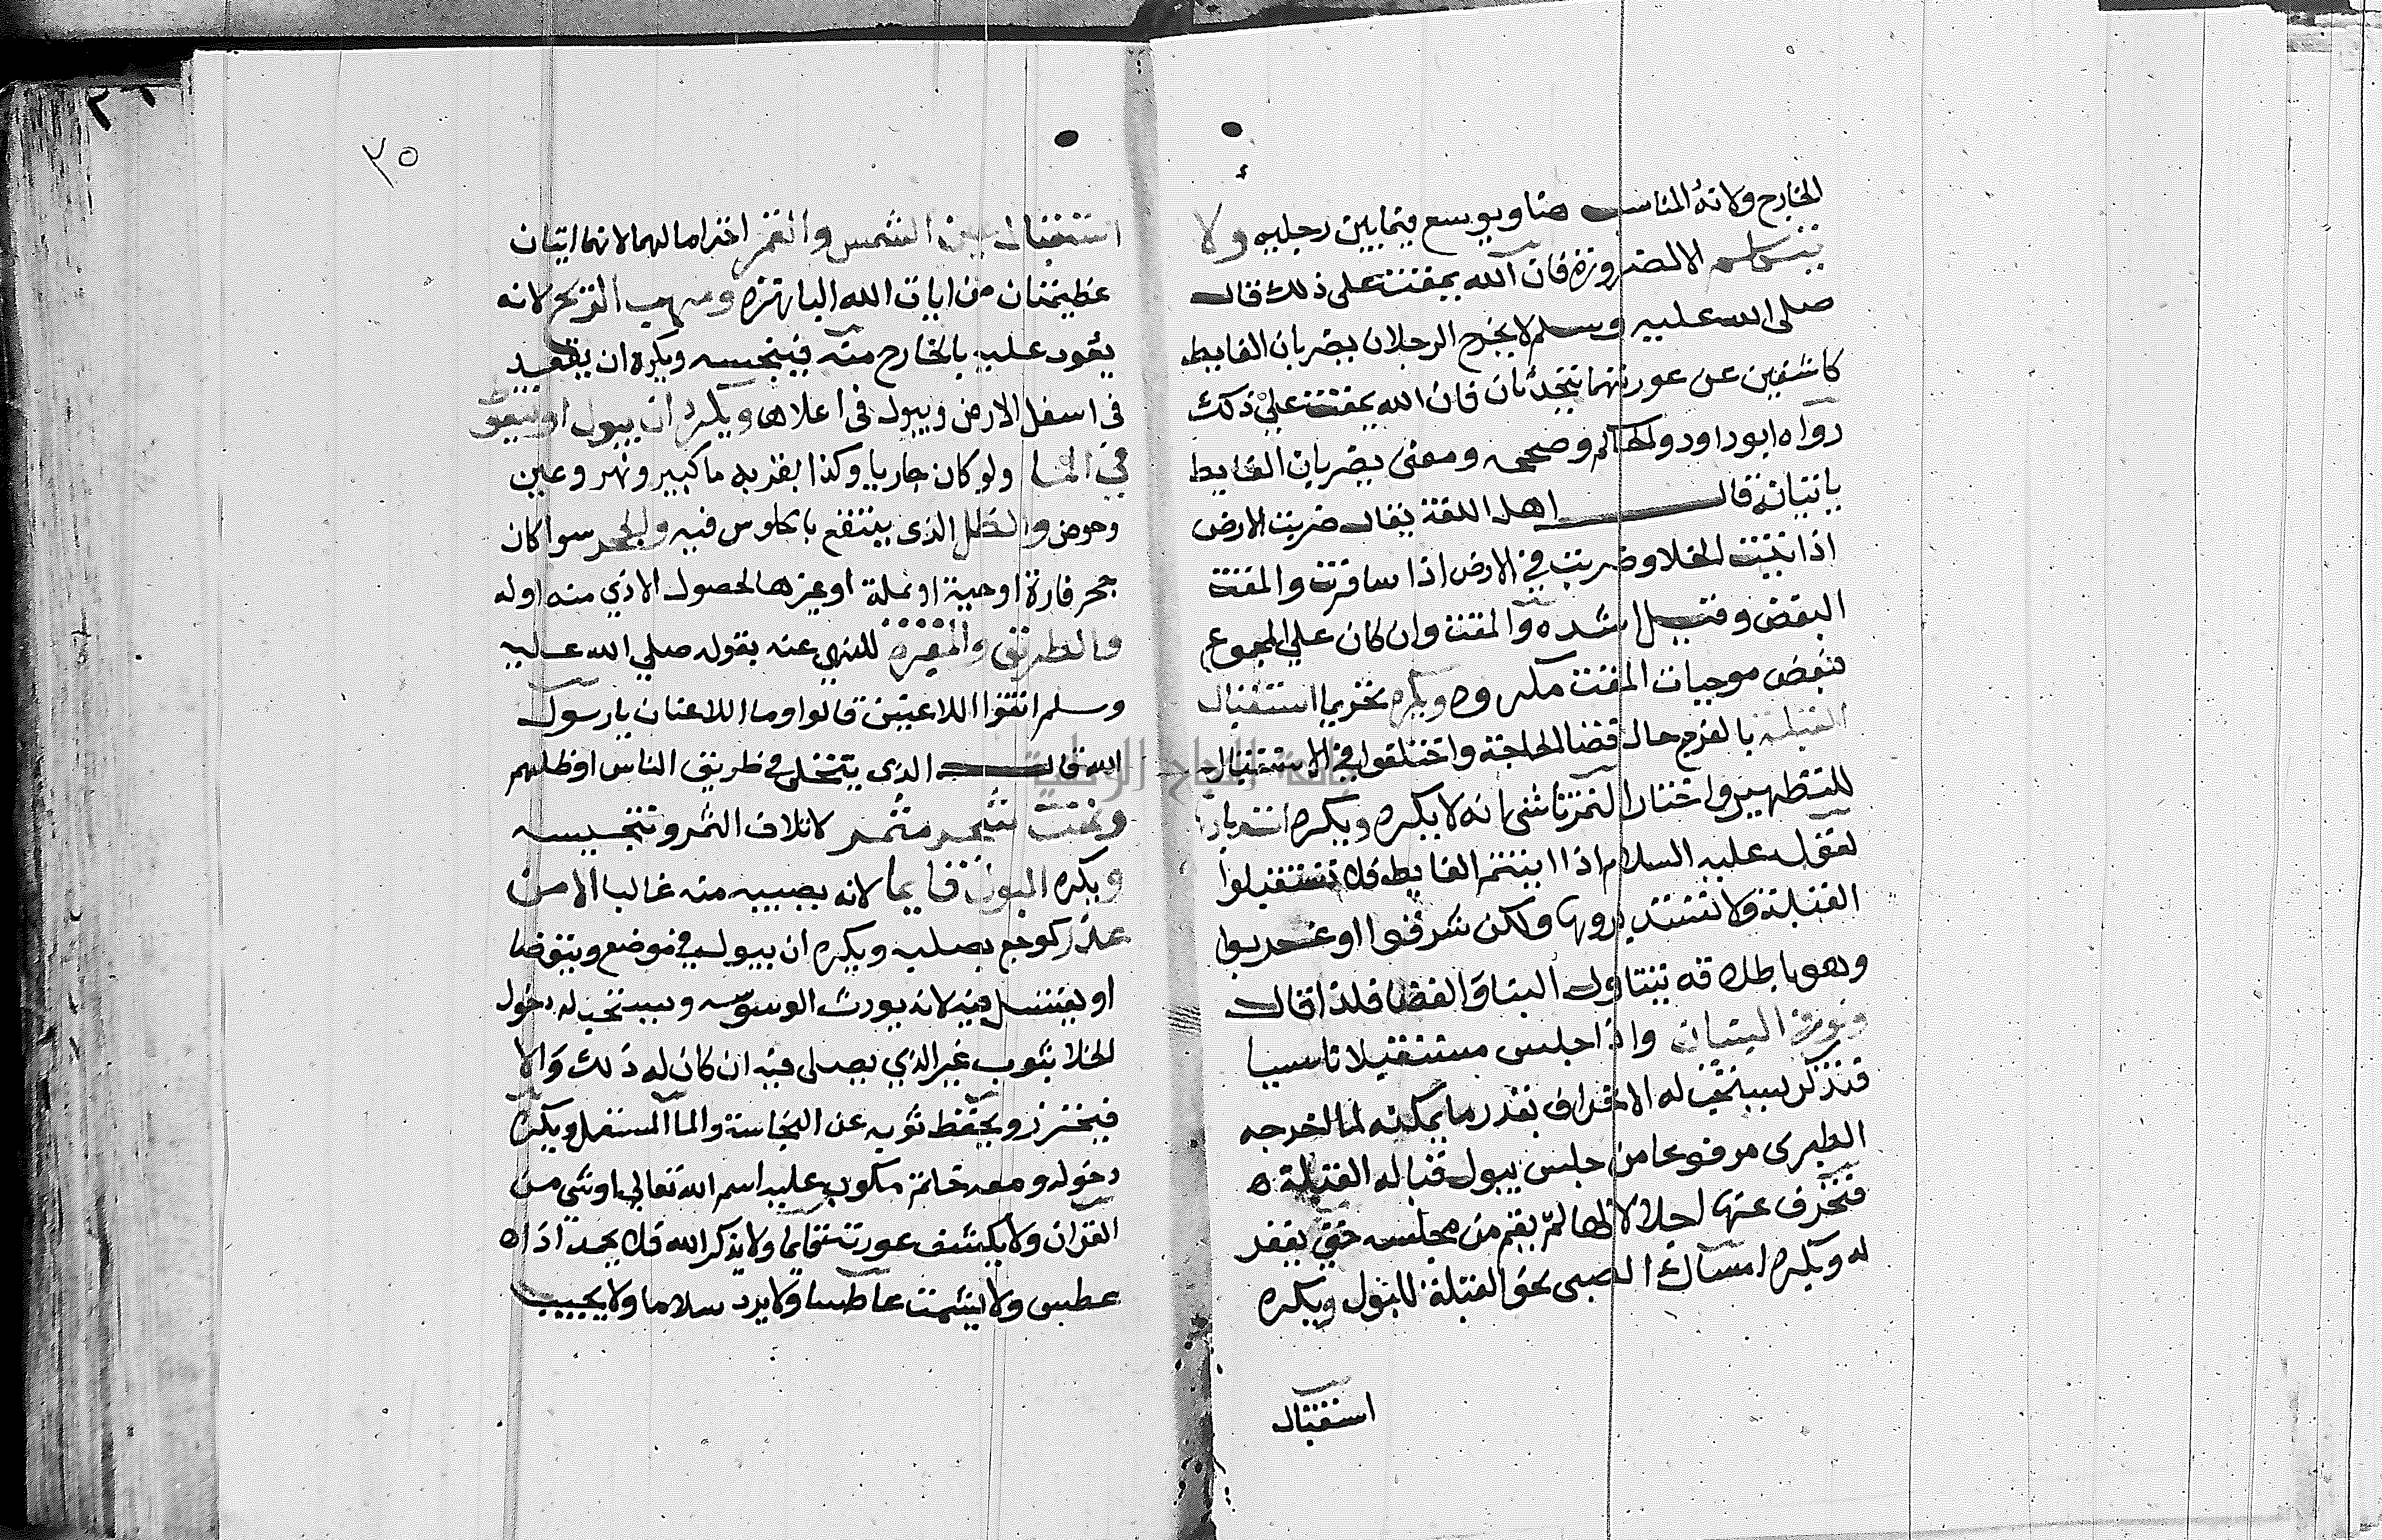 الخارج ولانه المناسب هنا ويوسع فيما بين رجليه ولا
يتكلم الا لضرورة فان الله يمقت على ذلك قال
صلى الله عليه وسلم لا يخرج الرجلان يضربان الغايط
كاشفين عن عورتهما يتحدثان فان الله يمقت على ذلك
رواه ابو داود والحاكم وصححه ومعنى يضربان الغايط
ياتيانه قال اهل اللغة يقال ضربت الارض
اذا اتيت الخلا وضربت في الارض اذا سافرت والمقت
البغض وقيل اشده والمقت وان كان على المجموع
فبعض موجبات المقت مكروه ويكره تحريما استقبال
القبلة بالفرج حال قضا الحاجة واختلفوا في الاستقبال
للتطهير واختار التمرتاشي انه لا يكره ويكره استدبارها
لقوله عليه السلام اذا اتيتم الغايط فلا تستقبلوا
القبلة ولا تستدبروها ولكن شرقوا او غربوا
وهو باطلاقه يتناول البنا والفضا فلذا قال
ولو في البنيان واذا جلس مستقبلا ناسيا
فتذكر يستحب له الانحراف بقدر ما يمكنه لما اخرجه
الطبري مرفوعا من جلس يبول قبالة القبلة ه
فتحرف عنها اجلالا لها لم يقم من مجلسه حتى يغفر
له ويكره امساك الصبي نحو القبلة للبول ويكره
استقبال
٣٥
استقبال عين الشمس والقمر احتراما لهما لانهما ايتان
عظيمتان من ايات الله الباهرة ومهب الريح لانه
يعود عليه بالخارج منه فينجسه ويكره ان يقعد
في اسفل الارض ويبول في اعلاها ويكره ان يبول او يتغوط
في الما ولو كان جاريا وكذا بقرب ما كبير ونهر وعين
وحوض والظل الذي ينتفع بالجلوس فيه والجحر سوا كان
جحر فارة او حية او نملة او غيرها لحصول الاذي منه او له
والطريق والمقبرة للنهي عنه بقوله صلي الله عليه
وسلم اتقوا اللاعنين قالوا وما اللاعنان يا رسول
الله قال الذي يتخلى في طريق الناس او ظلهم
وتحت شجر مثمر لاتلاف الثمر وتنجيسه
ويكره البول قايما لانه يصيبه منه غالبا الا من
عذر كوجع بصلبه ويكره ان يبول في موضع ويتوضا
او يغتسل فيه لانه يورث الوسوسه ويستحب له دخول
الخلا بثوب غير الذي يصلى فيه ان كان له ذلك والا
فيحترز ويحفظ ثوبه عن النجاسة والما المستعمل ويكره
دخوله ومعه خاتم مكتوب عليه اسم الله تعالي او شي من
القران ولا يكشف عورته قايما ولا يذكر الله فلا يحمد اذا ه
عطس ولا يشمت عاطسا ولا يرد سلاما ولا يجيب
جامعة النجاح الوطنية